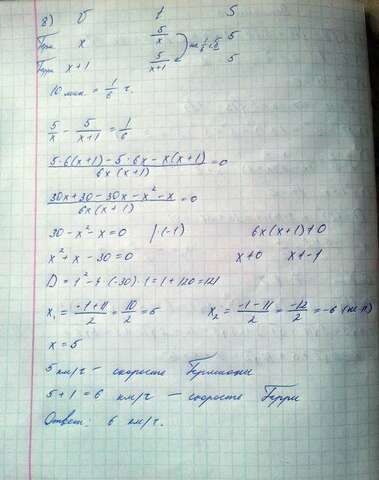 8) v t S
Герм x 5/x на 1/6 б. 5
Герри x+1 5/(x+1) 5
10 мин. = 1/6 г.
5/x - 5/(x+1) = 1/6
(5·6(x+1) - 5·6x - x(x+1))/(6x(x+1)) = 0
(30x+30-30x-x²-x)/(6x(x+1)) = 0
30-x²-x=0 /(-1) 6x(x+1)≠0
x²+x-30=0 x≠0 x≠-1
D = 1²-4·(-30)·1 = 1+120 = 121
x₁ = (-1+11)/2 = 10/2 = 5 x₂ = (-1-11)/2 = -12/2 = -6
x = 5
5 км/г - скорость Гермиони
5+1=6 км/г - скорость Герри
Ответ: 6 км/г.